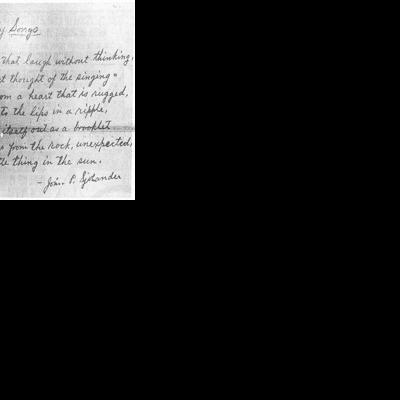 y Songs
that laugh without thinking,
t thought of the singing"
om a heart that is rugged,
to the lips in a ripple,
itself out as a brooklet
from the rock, unexpected,
tle thing in the sun.
- John P. Sjolander